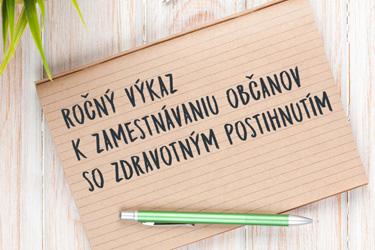 ROČNÝ VÝKAZ
K ZAMESTNÁVANIU OBČANOV
SO ZDRAVOTNÝM POSTIHNUTÍM